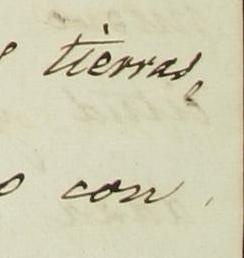 tierras,
o con